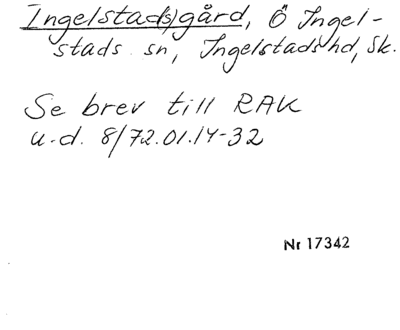 Ingelstad(s)gård, Ö Ingel-
stads sn, Ingelstads hd, Sk.
Se brev till RAK
u.d. 8/72.01.14-32
Nr 17342